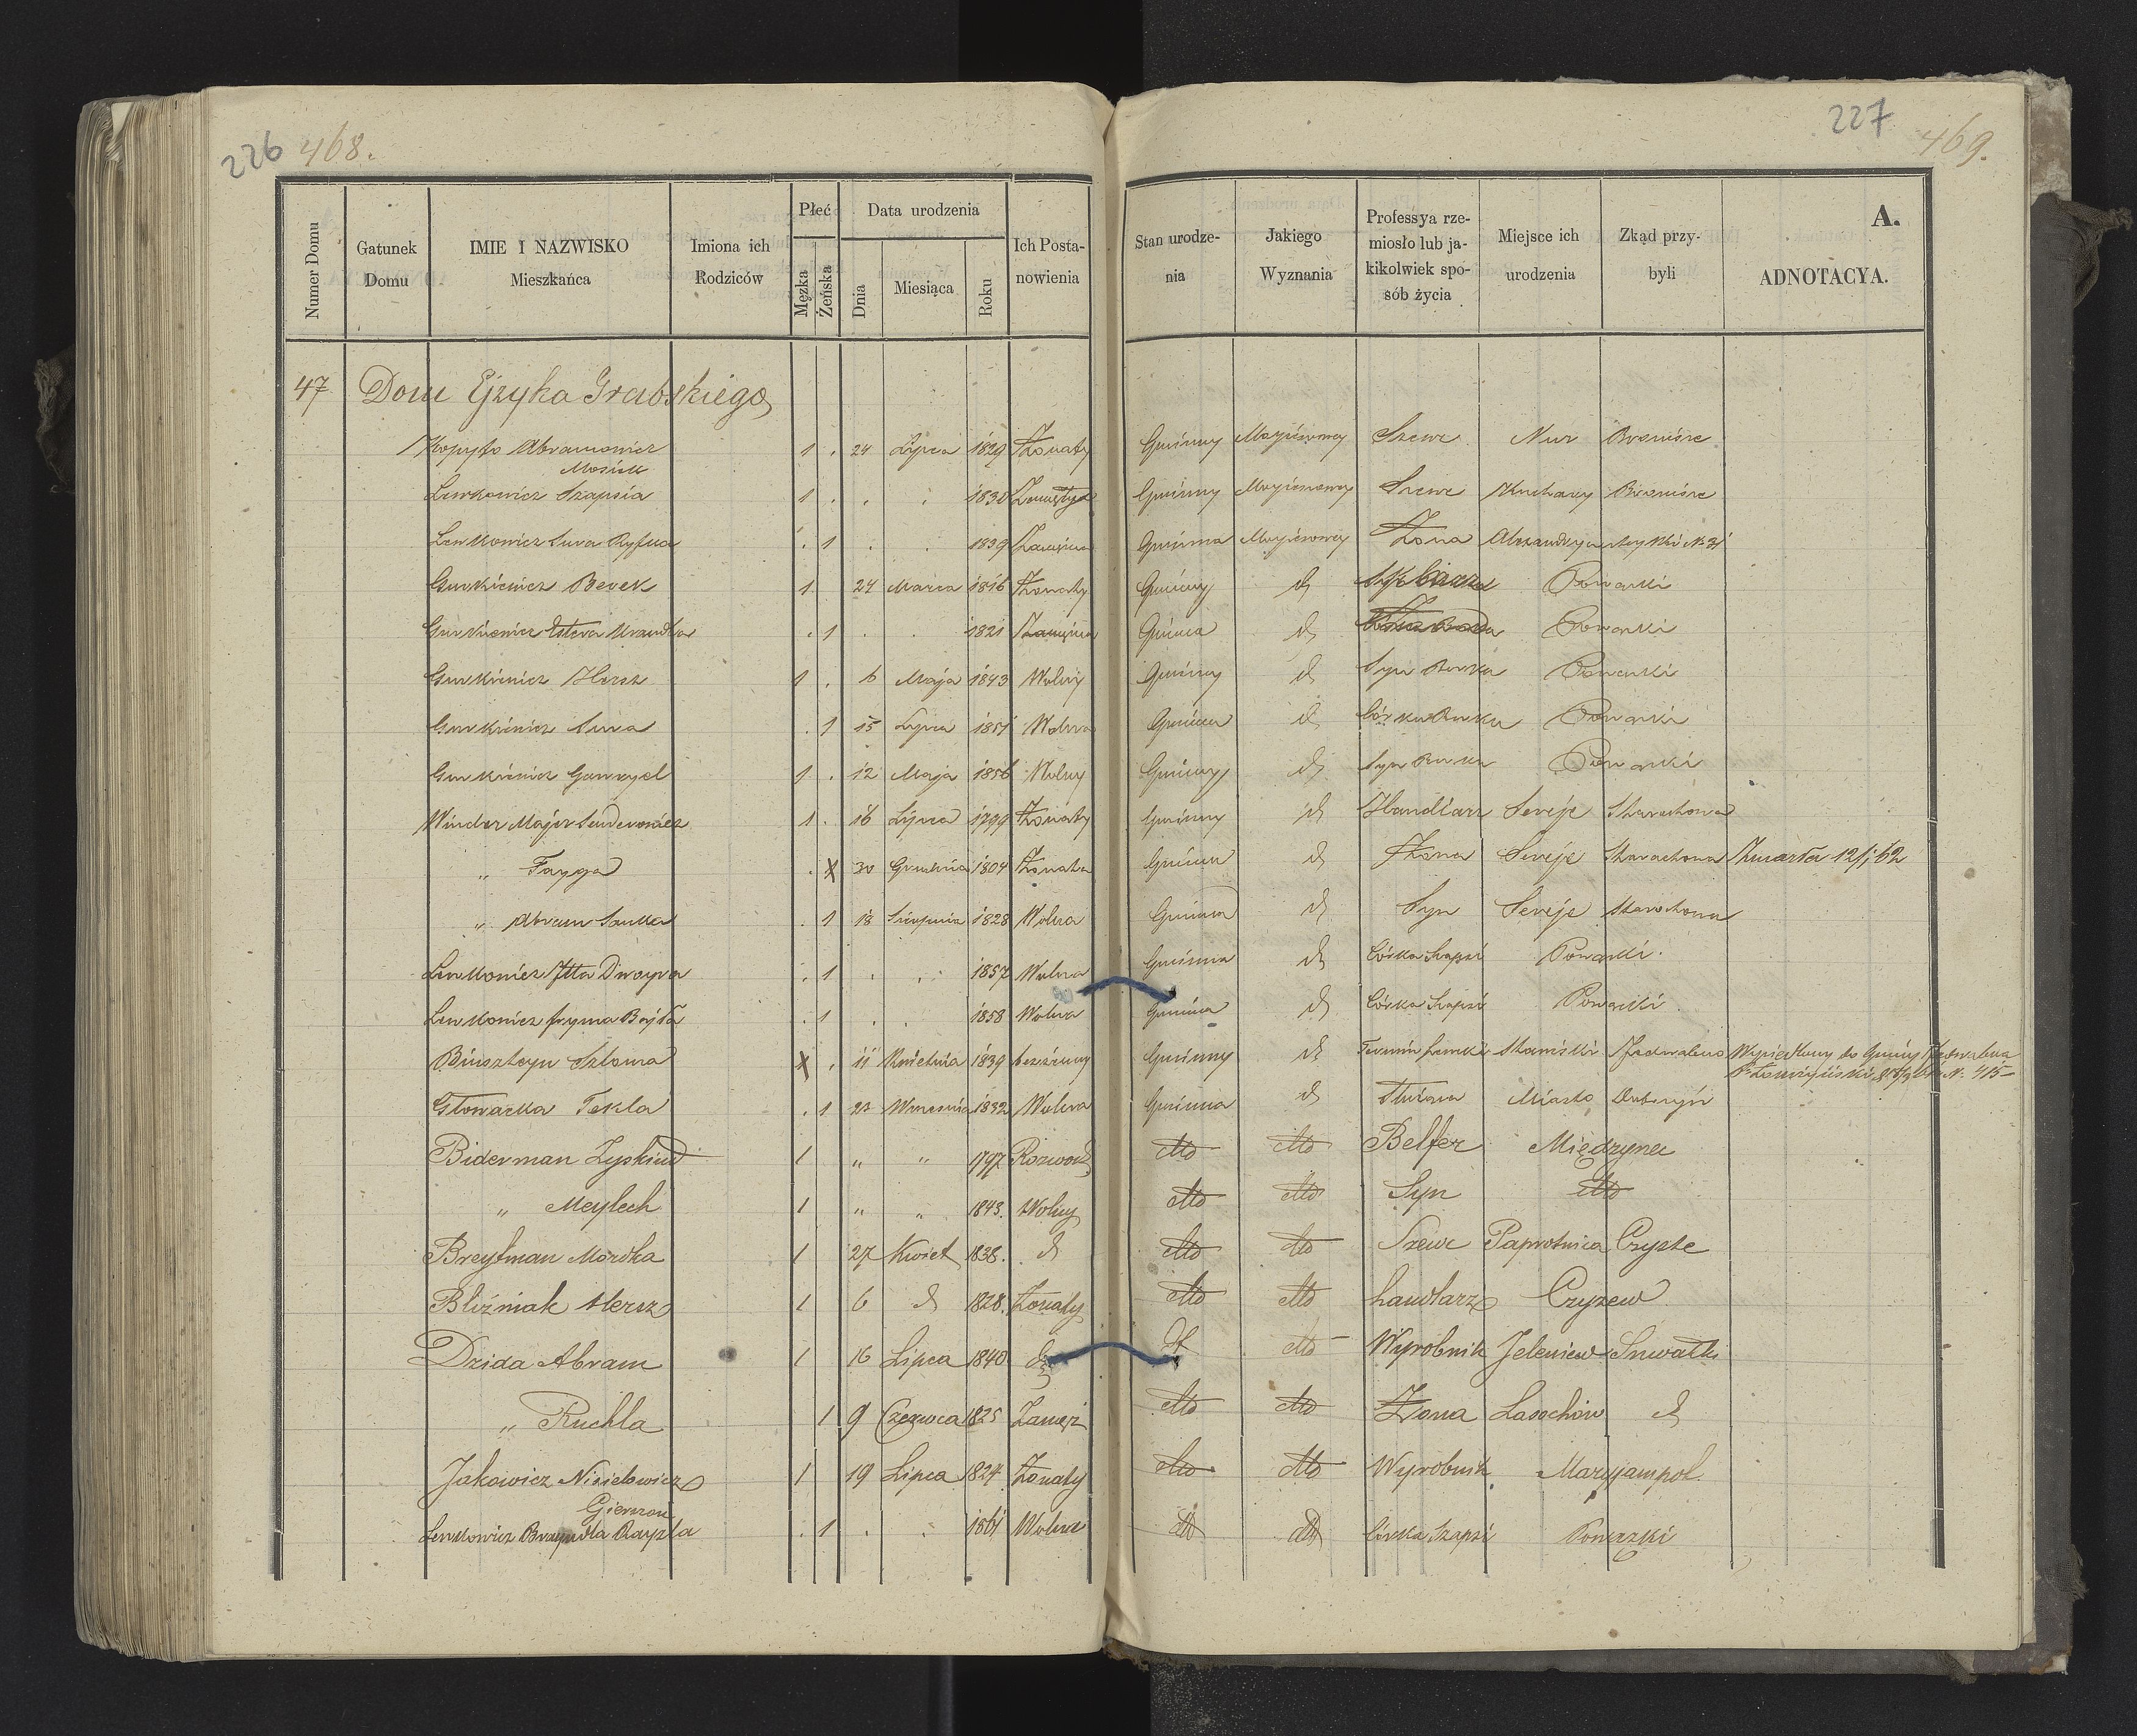 226 468.
227 469.
Numer Domu | Gatunek Domu | IMIE I NAZWISKO Mieszkańca | Imiona ich Rodziców | Płeć Męzka Żeńska | Data urodzenia Dnia Miesiąca Roku | Ich Postanowienia | Stan urodzenia | Jakiego Wyznania | Professya rzemiosło lub jakikolwiek sposób życia | Miejsce ich urodzenia | Zkąd przybyli | A. ADNOTACYA.
47 Dom Ejzyka Grabskiego
Kopyto Abramowicz Mosiek 1 . 24 Lipca 1829 Żonaty Gminny Mojżeszowy Szewc Nur
Lewkowicz Szapsia 1 . . . 1830 Gminny Mojżeszowy Szewc
Lewkowicz Sura Ryfka . 1 . . 1839 Gminna Mojżeszowy Żona
Gurkiewicz Berek 1 . 24 Marca 1816 Żonaty Gminny d Powązki
Gurkiewicz Estera . 1 . . 1821 Gminna d Powązki
Gurkiewicz Hersz 1 . 6 Maja 1843 Wolny Gminny d Syn Berka Powązki
Gurkiewicz Sura . 1 15 Lipca 1851 Wolna Gminna d Córka Berka Powązki
Gurkiewicz 1 . 12 Maja 1856 Wolny Gminny d Syn Berka Powązki
Winder Majer Senderowicz 1 . 16 Lipca 1799 Żonaty Gminny d Handlarz Sereje
" Fayga . X 30 Grudnia 1804 Żonata Gminna d Żona Sereje Zmarła 12/1 62
" Abram . 1 18 Sierpnia 1828 Wolna Gminna d Syn Sereje
Lewkowicz Itta Dwoyra . 1 . . 1857 Wolna Gminna d Córka Szapsi Powązki.
Lewkowicz Fryma Bajla . 1 . . 1858 Wolna Gminna d Córka Szapsi Powązki
Binszteyn Szloma X . 11 Kwietnia 1839 bezżenny Gminny d
Głowacka Tekla . 1 23 Września 1832 Wolna Gminna d Służąca Miasto
Biderman Zyskind 1 " " 1797 Rozwod. dtto dtto Belfer Międzyrzec
" Meylech 1 " " 1843. Wolny dtto dtto Syn dtto
Breytman Mordka 1 27 Kwiet 1838. d dtto dtto Szewc Paprotnica Czyste
Bliźniak Hersz 1 6 d 1828. Żonaty dtto dtto handlarz Czyzew
Dzida Abram 1 16 Lipca 1840 d dt dtto Wyrobnik Jeleniew Suwałki
" Ruchla 1 9 Czerwca 1825 Zamęż dtto dtto Żona Lasochów d
Jakowicz Nisielowicz Gierszon 1 19 Lipca 1827 Żonaty dtto dtto Wyrobnik Maryjampol.
Lewkowicz Brayndla Rayzla . 1 . . 1861 Wolna dtto dtto Córka Szapsi Powązki